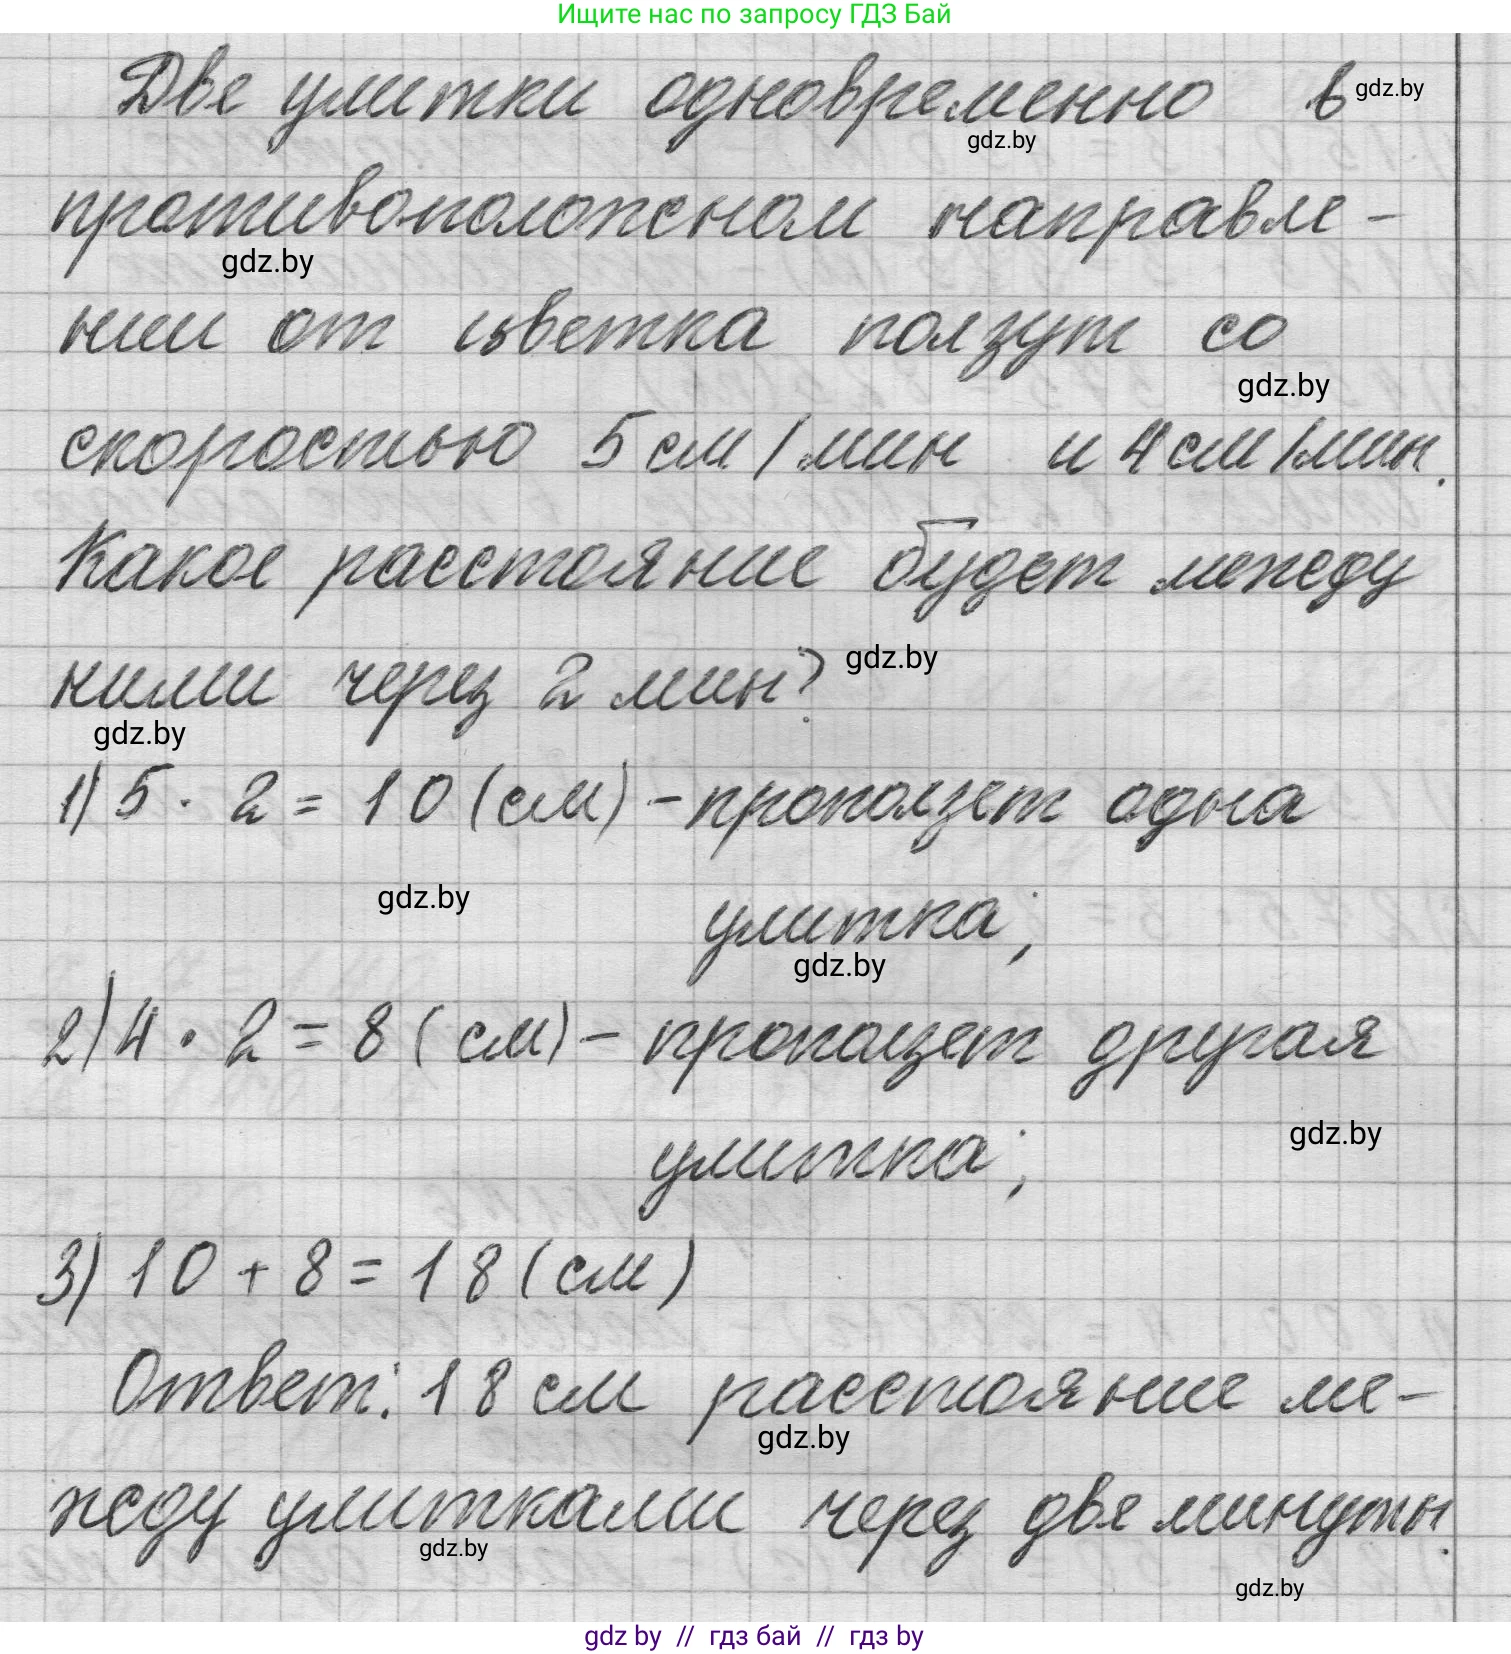 Ищите нас по запросу ГДЗ Бай
Две улитки одновременно в gdz.by
gdz.by
противоположном направле-
gdz.by
нии от цветка ползут со
gdz.by
скоростью 5 см/мин и 4 см/мин.
Какое расстояние будет между
ними через 2 мин? gdz.by
gdz.by
1) 5 · 2 = 10 (см) - проползет одна
gdz.by
улитка;
gdz.by
2) 4 · 2 = 8 (см) - проползет другая
gdz.by
улитка;
3) 10 + 8 = 18 (см)
Ответ: 18 см расстояние ме-
gdz.by
жду улитками через две минуты.
gdz.by
gdz.by
gdz by // гдз бай // гдз by